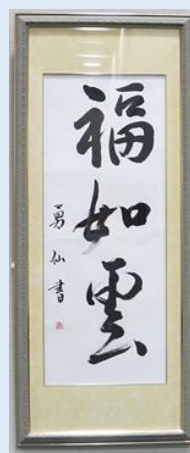 福如雲
勇仙書